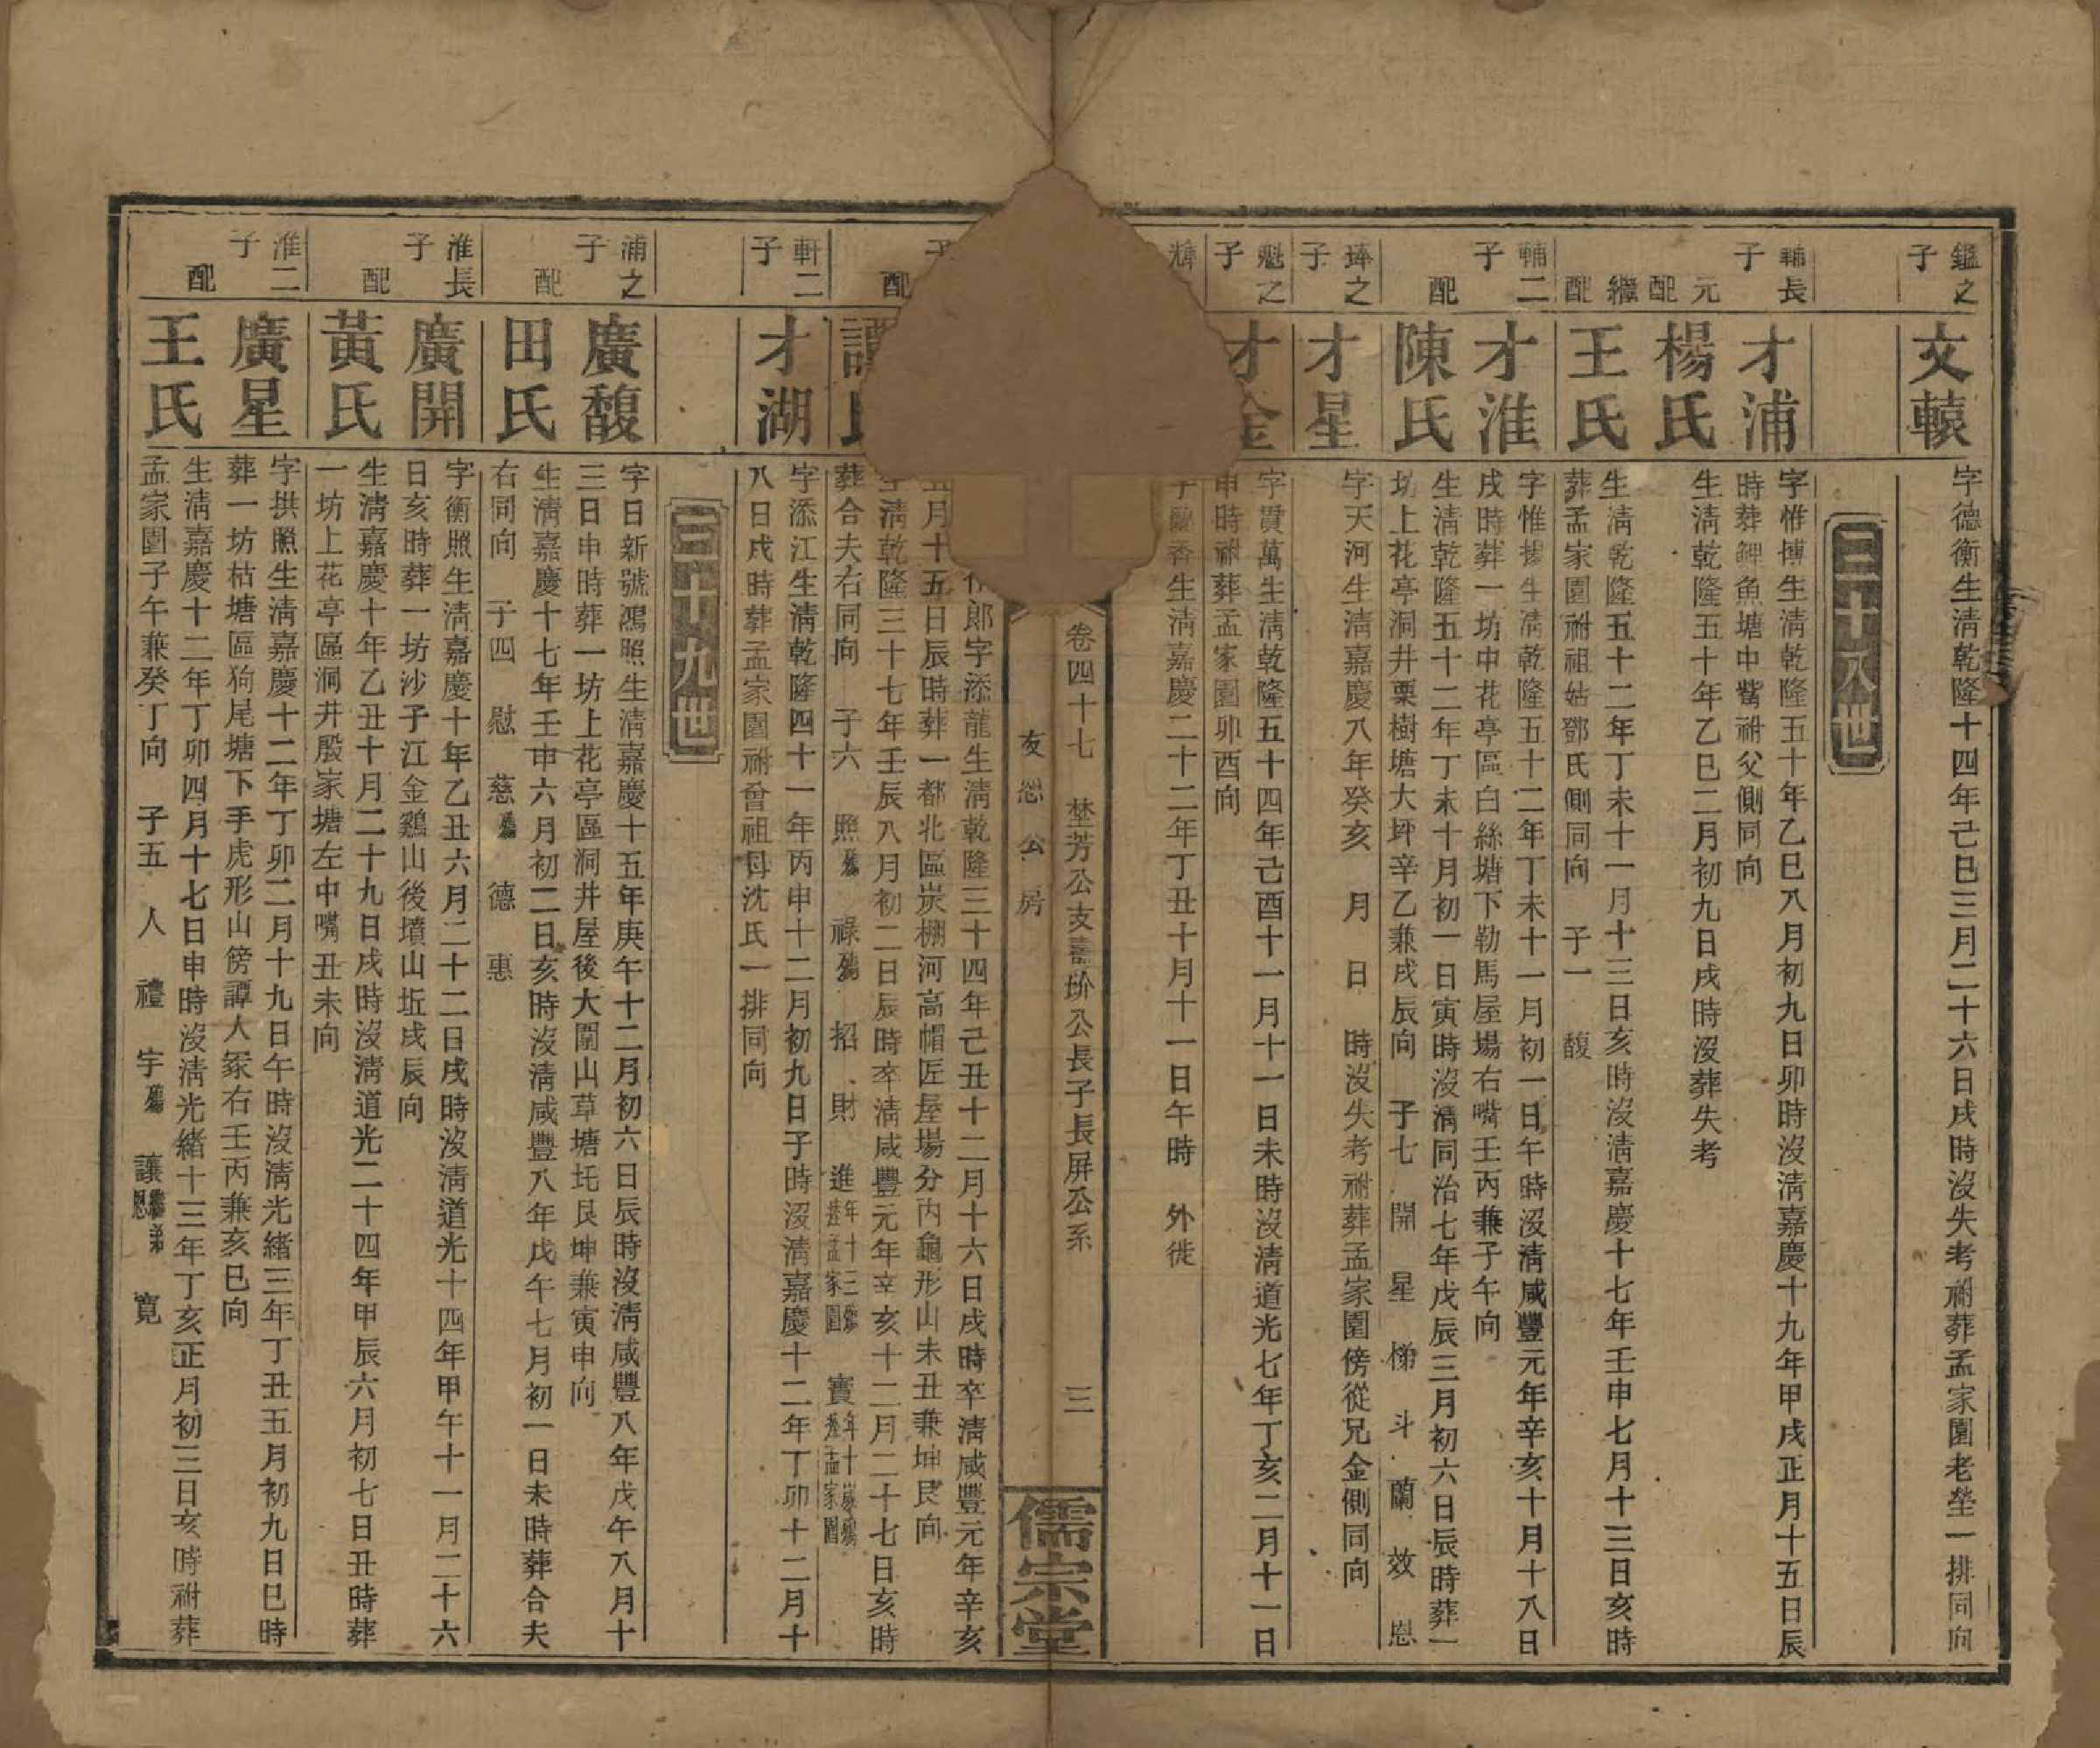 鑑之子
文轅
字德衡生淸乾隆十四年己巳三月二十六日戌時沒失考祔葬孟家園老塋一排同向
三十八世
輔長子
才浦
字惟博生淸乾隆五十年乙巳八月初九日卯時沒淸嘉慶十九年甲戌正月十五日辰
時葬鯉魚塘中嘴祔父側同向
元配
楊氏
生淸乾隆五十年乙巳二月初九日戌時沒葬失考
繼配
王氏
生淸乾隆五十二年丁未十一月十三日亥時沒淸嘉慶十七年壬申七月十三日亥時
葬孟家園祔祖姑鄧氏側同向 子一 馥
輔二子
才淮
字惟揚生淸乾隆五十二年丁未十一月初一日午時沒淸咸豐元年辛亥十月十八日
戌時葬一坊中花亭區白絲塘下勒馬屋場右嘴壬丙兼子午向
配
陳氏
生淸乾隆五十二年丁未十月初一日寅時沒淸同治七年戊辰三月初六日辰時葬一
坊上花亭洞井栗樹塘大坪辛乙兼戌辰向 子七 開 星 悌 斗 蘭 效 慰
琫之子
才星
字天河生淸嘉慶八年癸亥 月 日 時沒失考祔葬孟家園傍從兄金側同向
魁之子
才金
字貫萬生淸乾隆五十四年己酉十一月十一日未時沒淸道光七年丁亥二月十一日
申時祔葬孟家園卯酉向
香生淸嘉慶二十二年丁丑十月十一日午時 外徙
卷四十七 埜芳公支壽玠公長子長屏公系 三
友恕公房
儒宗堂
郎字添龍生淸乾隆三十四年己丑十二月十六日戌時卒淸咸豐元年辛亥
五月十五日辰時葬一都北區炭棚河高帽匠屋場分內龜形山未丑兼坤艮向
配
譚氏
生淸乾隆三十七年壬辰八月初二日辰時卒淸咸豐元年辛亥十二月二十七日亥時
葬合夫右同向 子六 照殤 祿殤 招 財 進年十三殤葬孟家園 寶年十歲殤葬孟家園
軒二子
才湖
字添江生淸乾隆四十一年丙申十二月初九日子時沒淸嘉慶十二年丁卯十二月十
八日戌時葬孟家園祔曾祖母沈氏一排同向
三十九世
浦之子
廣馥
字日新號鴻照生淸嘉慶十五年庚午十二月初六日辰時沒淸咸豐八年戊午八月十
三日申時葬一坊上花亭區洞井屋後大圍山草塘坉艮坤兼寅申向
配
田氏
生淸嘉慶十七年壬申六月初二日亥時沒淸咸豐八年戊午七月初一日未時葬合夫
右同向 子四 慰 慈殤 德 惠
淮長子
廣開
字衡照生淸嘉慶十年乙丑六月二十二日戌時沒淸道光十四年甲午十一月二十六
日亥時葬一坊沙子江金鷄山後墳山坵戌辰向
配
黃氏
生淸嘉慶十年乙丑十月二十九日戌時沒淸道光二十四年甲辰六月初七日丑時葬
一坊上花亭區洞井殷家塘左中嘴丑未向
淮二子
廣星
字拱照生淸嘉慶十二年丁卯二月十九日午時沒淸光緖三年丁丑五月初九日巳時
葬一坊枯塘區狗尾塘下手虎形山傍譚大冢右壬丙兼亥巳向
配
王氏
生淸嘉慶十二年丁卯四月十七日申時沒淸光緖十三年丁亥正月初三日亥時祔葬
孟家園子午兼癸丁向 子五 人 禮 宇殤 讓 寬